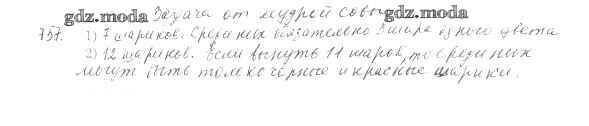 gdz.moda Задача от мудрой совы gdz.moda
757. 1) 7 шариков. Среди них обязательно 3 шара одного цвета
2) 12 шариков. Если вынуть 11 шаров, то среди них
могут быть только чёрные и красные шарики.